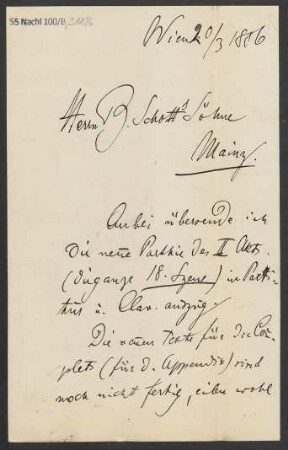 55 Nachl 100/B,
Wien 20/3 1886
Herrn B. Schott's Söhne
Mainz.
Anbei übersende ich
Die neue Parthie des II Akts
(die ganze 18. Szene) in Parti-
tur u. Clav. auszug.
Die neuen Texte für die Cou-
plets (für d. Appendix) sind
noch nicht fertig, wohl